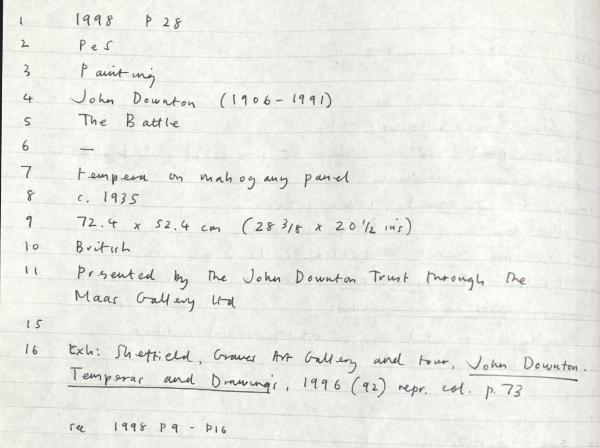 1 1998 P 28
2 PeS
3 Painting
4 John Downton (1906-1991)
5 The Battle
6 —
7 tempera on mahogany panel
8 c. 1935
9 72.4 x 52.4 cm (28 3/8 x 20 1/2 ins)
10 British
11 Presented by the John Downton Trust through the
Maas Gallery Ltd
15
16 Exh: Sheffield, Graves Art Gallery and tour, John Downton.
Temperas and Drawings, 1996 (92) repr. col. p. 73
see 1998 P9 - P16